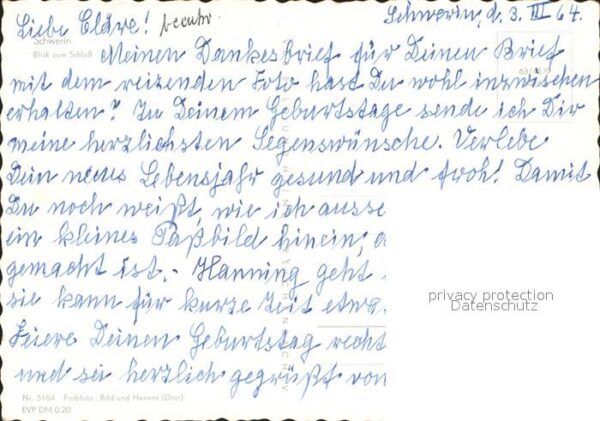 Schwerin, d. 3. III 64.
Liebe Cläre! beantw.
Schwerin
Blick zum Schloß
Meinen Dankesbrief für Deinen Brief
mit dem reizenden Foto hast Du wohl inzwischen
erhalten? Zu Deinem Geburtstage sende ich Dir
meine herzlichsten Segenswünsche. Verlebe
Dein neues Lebensjahr gesund und froh! Damit
Du noch weißt, wie ich ausse
ein kleines Paßbild hinein,
gemacht ist.- Hanning geht
sie kann für kurze Zeit etwa
Feiere Deinen Geburtstag recht
und sei herzlich gegrüßt von
privacy protection
Datenschutz
Nr. 5184 Farbfoto: Bild und Heimat
EVP DM 0,20